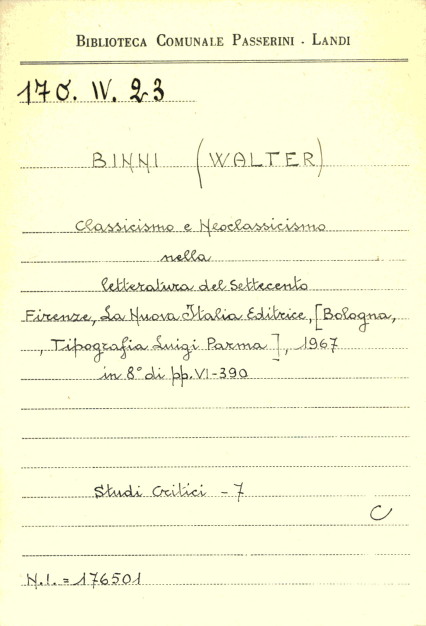 BIBLIOTECA COMUNALE PASSERINI - LANDI
170. IV. 23
BINNI (WALTER)
Classicismo e Neoclassicismo
nella
letteratura del Settecento
Firenze, La Nuova Italia Editrice, [Bologna,
, Tipografia Luigi Parma ], 1967
in 8° di pp. VI-390
Studi Critici - 7
C
N.I. = 176501